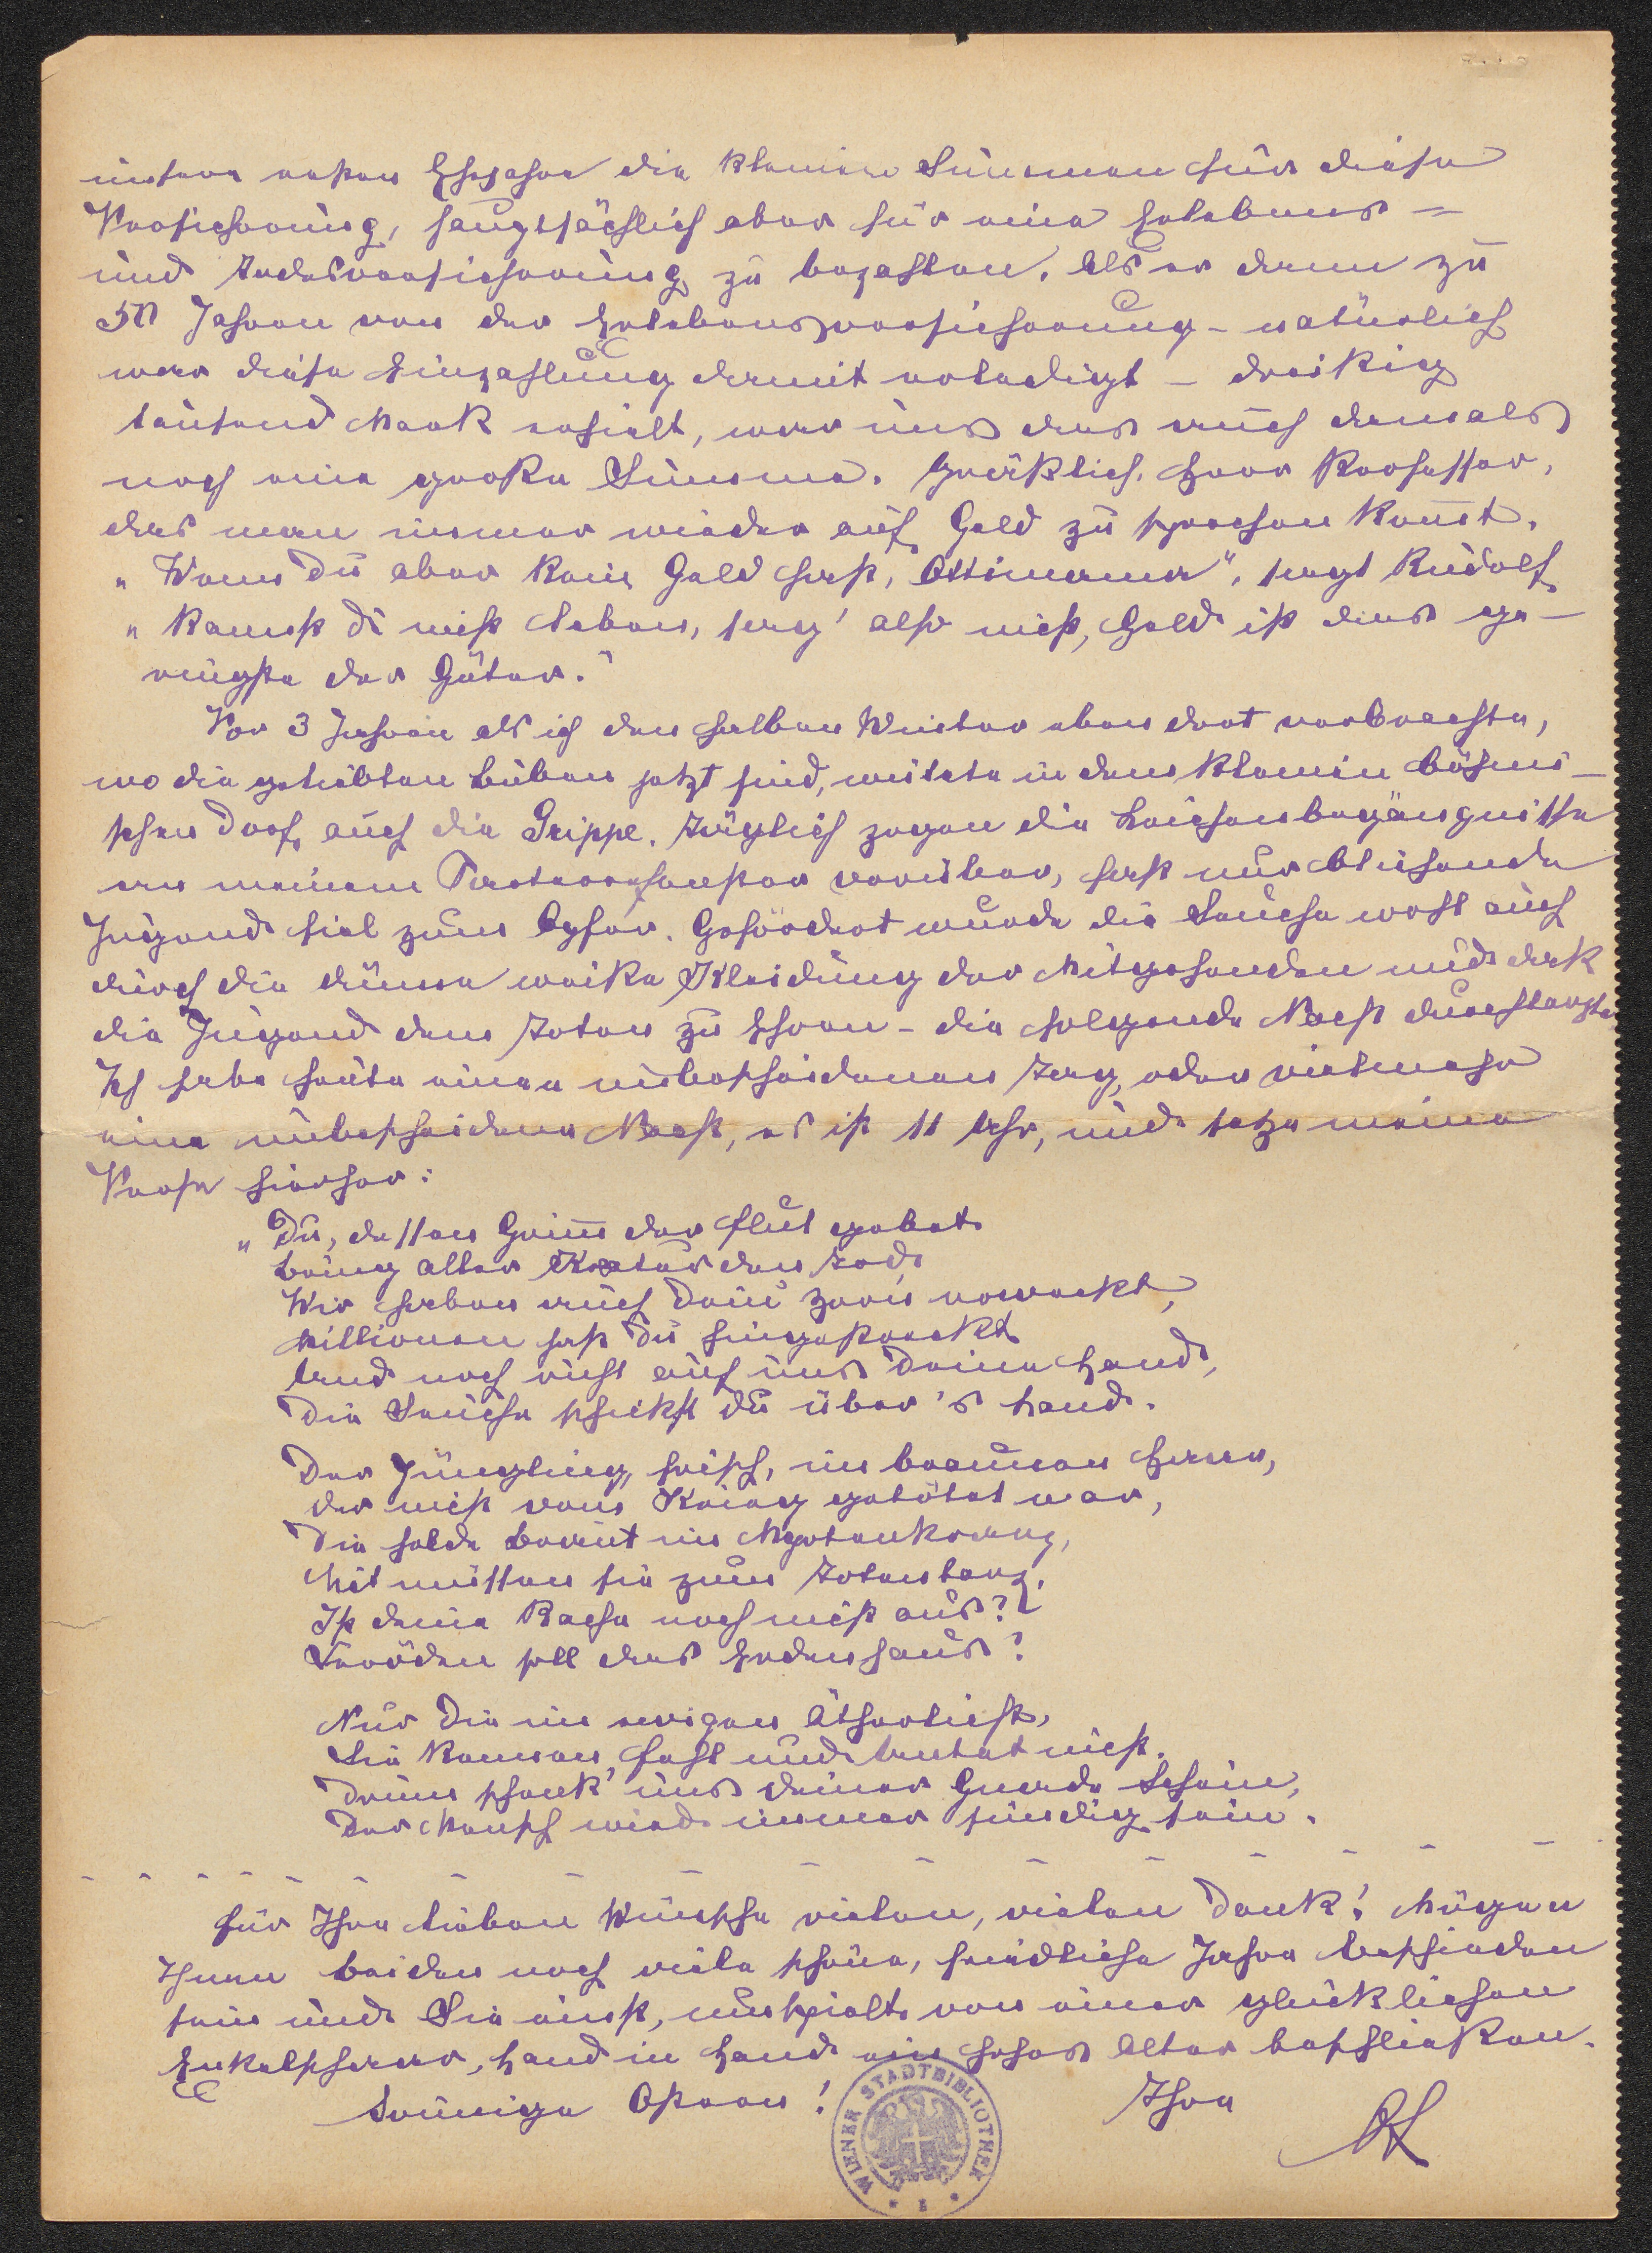 unsern ersten Ehejahr die kleinere Summen für diese
Versicherung, hauptsächlich aber für eine Erlebens-
und Todesversicherung zu bezahlen. Als er dann zu
50 Jahren von der Erlebensversicherung – natürlich
war diese Einzahlung damit erledigt – dreißig
tausend Mark erhielt, war uns das auch damals
noch eine große Summe. Gräßlich, Herr Professor,
daß man immer wieder auf Geld zu sprechen komt.
„Wenn Du aber kein Geld hast, Ottimama", sagt Rudolf
„kannst Du nicht leben, sag' also nicht, Geld ist das ge-
ringste der Güter."
Vor 3 Jahren als ich den halben Winter eben dort verbrachte,
wo die geliebten Buben jetzt sind, wütete in dem kleinen böhmi-
schen Dorf auch die Grippe. Täglich zogen die Leichenbegängnisse
an meinem Parterrefenster vorüber, fast nur blühende
Jugend fiel zum Opfer. Gefördert wurde die Seuche wohl auch
durch die dünne weiße Kleidung der Mitgehenden und daß
die Jugend dem Toten zu Ehren – die folgende Nacht durchtanzte.
Ich habe heute einen unbescheidenen Tag, oder vielmehr
eine unbescheidene Nacht, es ist 11 Uhr, und setze meine
Verse hierher:
„Du, dessen Grim̄ der Flut gebot
Bring aller Kreatur den Tod,
Wir haben auch Dein Zorn erweckt,
Millionen hast Du hingestreckt
Und noch ruht auf uns Deine Hand,
Die Seuche schickst du über's Land.
Der Jüngling, frisch, im braunen Haar,
der nicht vom Krieg getötet war,
Die holde Braut im Myrtenkranz,
Mit müssen sie zum Totentanz.
Ist deine Rache noch nicht aus?
Veröden soll das Erdenhaus?
Nur Die im ewigen Ätherlicht,
Sie kennen Fehl und Untat nicht.
Drum schenk' uns deiner Gnade Schein,
Der Mensch wird immer sündig sein.
Für Ihre lieben Wünsche vielen, vielen Dank! Mögen
Ihnen beiden noch viele schöne, friedliche Jahre beschieden
sein und Sie einst, umspielt von einer glücklichen
Enkelschar, Hand in Hand ein hohes Alter beschließen.
Sonnige Ostern! Ihre
WIENER STADTBIBLIOTHEK